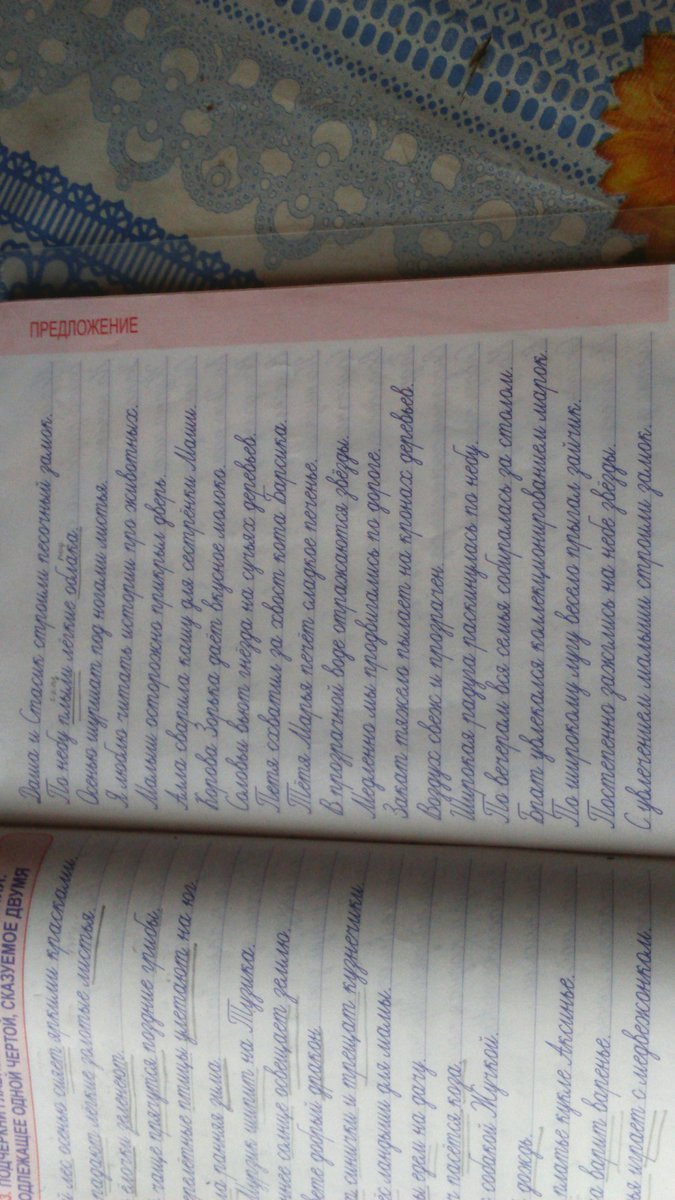 3. ПОДЧЕРКНИ
ОДЛЕЖАЩЕЕ ОДНОЙ ЧЕРТОЙ, СКАЗУЕМОЕ ДВУМЯ
лес осенью сияет яркими красками.
падают лёгкие золотые листья
ёлочки зеленеют
чаще прячутся поздние грибы.
птицы улетают на юг.
ранняя зима
шипит на Тузика.
солнце освещает землю.
добрый дракон
и трещат кузнечики
ландыши для мамы.
едем на дачу
пасётся коза.
собакой Жучкой.
дождь
платье кукле Аксинье.
варит варенье.
играет с медвежонком.
ПРЕДЛОЖЕНИЕ
Даша и Стасик строили песочный замок.
По небу плыли лёгкие облака.
Осенью шуршат под ногами листья.
Я люблю читать истории про животных.
Малыш осторожно прикрыл дверь.
Алла сварила кашу для сестрёнки Маши.
Корова Зорька даёт вкусное молоко.
Соловьи вьют гнёзда на сучьях деревьев.
Петя схватил за хвост кота Барсика.
Тётя Марья печёт сладкое печенье.
В прозрачной воде отражаются звёзды.
Медленно мы продвигались по дороге.
Закат тяжело пылает на кронах деревьев.
Воздух свеж и прозрачен.
Широкая радуга раскинулась по небу.
По вечерам вся семья собиралась за столом.
Брат увлекался коллекционированием марок.
По широкому лугу весело прыгал зайчик.
Постепенно зажглись на небе звёзды.
С увлечением малыши строили замок.